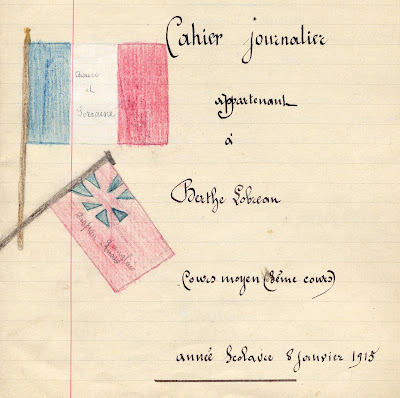 Cahier journalier
appartenant
à
Berthe Lobreau
Cours moyen (2ème cours)
année Scolaire 8 Janvier 1915
Alsace
et
Lorraine